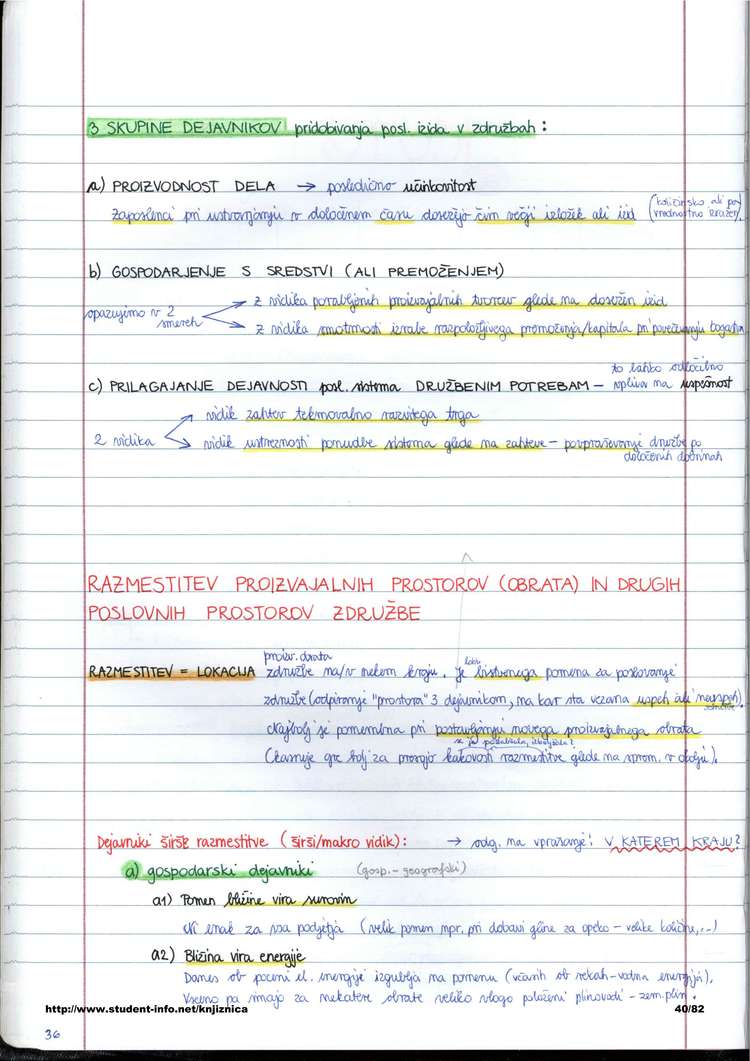 3 SKUPINE DEJAVNIKOV pridobivanja posl. izida v združbah:
a) PROIZVODNOST DELA → posledično učinkovitost
Zaposlenci pri ustvarjanju v določenem času dosežejo čim večji izložek ali izid (količinsko ali pa
vrednostno izražen).
b) GOSPODARJENJE S SREDSTVI (ALI PREMOŽENJEM)
opazujemo v 2 smereh
z vidika porabljenih proizvajalnih tvorcev glede na dosežen izid
z vidika smotrnosti izrabe razpoložljivega premoženja/kapitala pri povečevanju bogastva
c) PRILAGAJANJE DEJAVNOSTI posl. sistema DRUŽBENIM POTREBAM – to lahko odločilno
vpliva na uspešnost
2 vidika
vidik zahtev tekmovalno razvitega trga
vidik ustreznosti ponudbe sistema glede na zahteve – povpraševanje družbe po
določenih dobrinah
RAZMESTITEV PROIZVAJALNIH PROSTOROV (OBRATA) IN DRUGIH
POSLOVNIH PROSTOROV ZDRUŽBE
proizv. obrata
RAZMESTITEV = LOKACIJA združbe na/v nekem kraju. Je bistvenega pomena za poslovanje
združbe (odpiranje "prostora" 3 dejavnikom, na kar sta vezana uspeh ali neuspeh)
združbe.
Najbolj je pomembna pri postavljanju novega proizvajalnega obrata
se je poslabšala, izboljšala?
(kasneje gre bolj za presojo kakovosti razmestitve glede na sprem. v okolju).
Dejavniki širše razmestitve (širši/makro vidik): → odg. na vprašanje: V KATEREM KRAJU?
a) gospodarski dejavniki (gosp.-geografski)
a1) Pomen bližine vira surovin
Ni enak za vsa podjetja (velik pomen npr. pri dobavi gline za opeko – velike količine,..)
a2) Bližina vira energije
Danes ob poceni el. energije izgublja na pomenu (včasih ob rekah-vodna energija).
Vseeno pa imajo za nekatere obrate veliko vlogo položeni plinovodi – zem.plin.
http://www.student-info.net/knjiznica
40/82
36